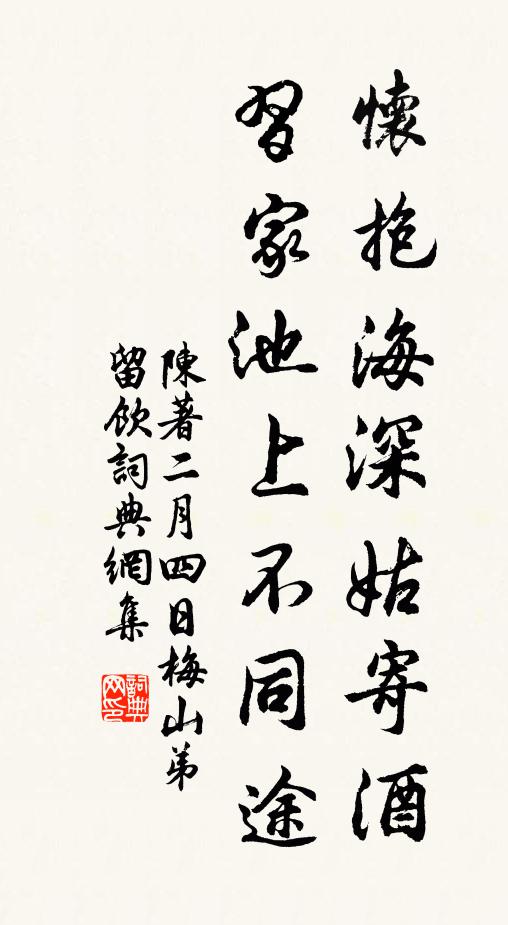 懷抱海深姑寄酒
習家池上不同途
陳著二月四日梅山弟
留飲詞典網集
詞典
网印